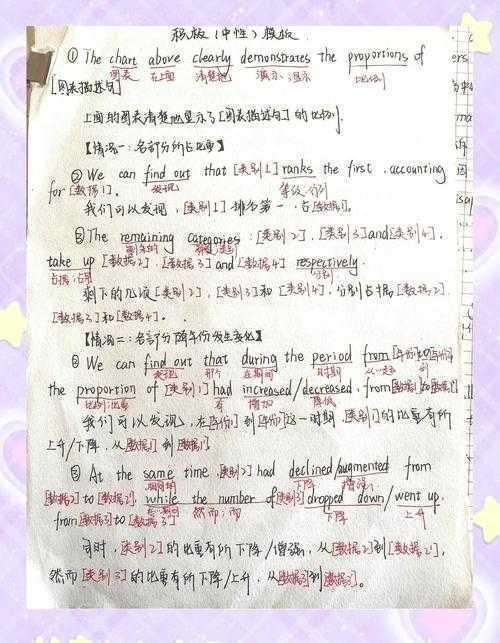 积极(中性)模板
① The chart above clearly demonstrates the proportions of
图表 在上面 清楚地 演示、显示 比例
[图表描述句]
上面的图表清楚地显示了[图表描述句]的比例.
【情况一:各部分所占比重】
② We can find out that [类别1] ranks the first, accounting
发现 等级,列
for [数据1].
我们可以发现,[类别1]排名第一,占[数据1].
③ The remaining categories: [类别2], [类别3] and [类别4],
剩余的
take up [数据2], [数据3] and [数据4] respectively.
占据;占用 分别
剩下的几项[类别2],[类别3]和[类别4],分别占据[数据2],
[数据3]和[数据4].
【情况二:各部分随年份发生变化】
④ We can find out that during the period from [年份]to[年份]
发现 那个 在期间 时期 从…到
the proportion of [类别1] had increased/decreased, from[数据1]to[数据1']
比例;比重 有 增加 降低
我们可以发现,在[年份]到[年份]这一时期,[类别1]的比重有所
上升/下降,从[数据1]到[数据1'].
⑤ At the same time, [类别2] had declined/augmented from
同时 下降 增强
[数据2] to [数据2'], while the number of[类别3]dropped down/went up,
然而;而 下降 上升
from[数据3]to[数据3']
同时,[类别2]的比重有所下降/增强,从[数据2]到[数据2'],
然而[类别3]的比重有所下降/上升,从[数据3]到[数据3']。